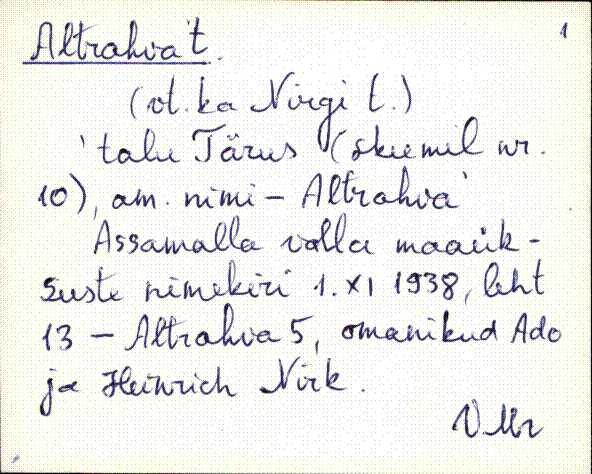 Altrahva t. 1
(vt. ka Nirgi t.)
'talu Tärus (skeemil nr.
10), am. nimi - Altrahva'
Assamalla valla maaük-
suste nimekiri 1. XI 1938, leht
13 - Altrahva 5, omanikud Ado
ja Heinrich Nirk.